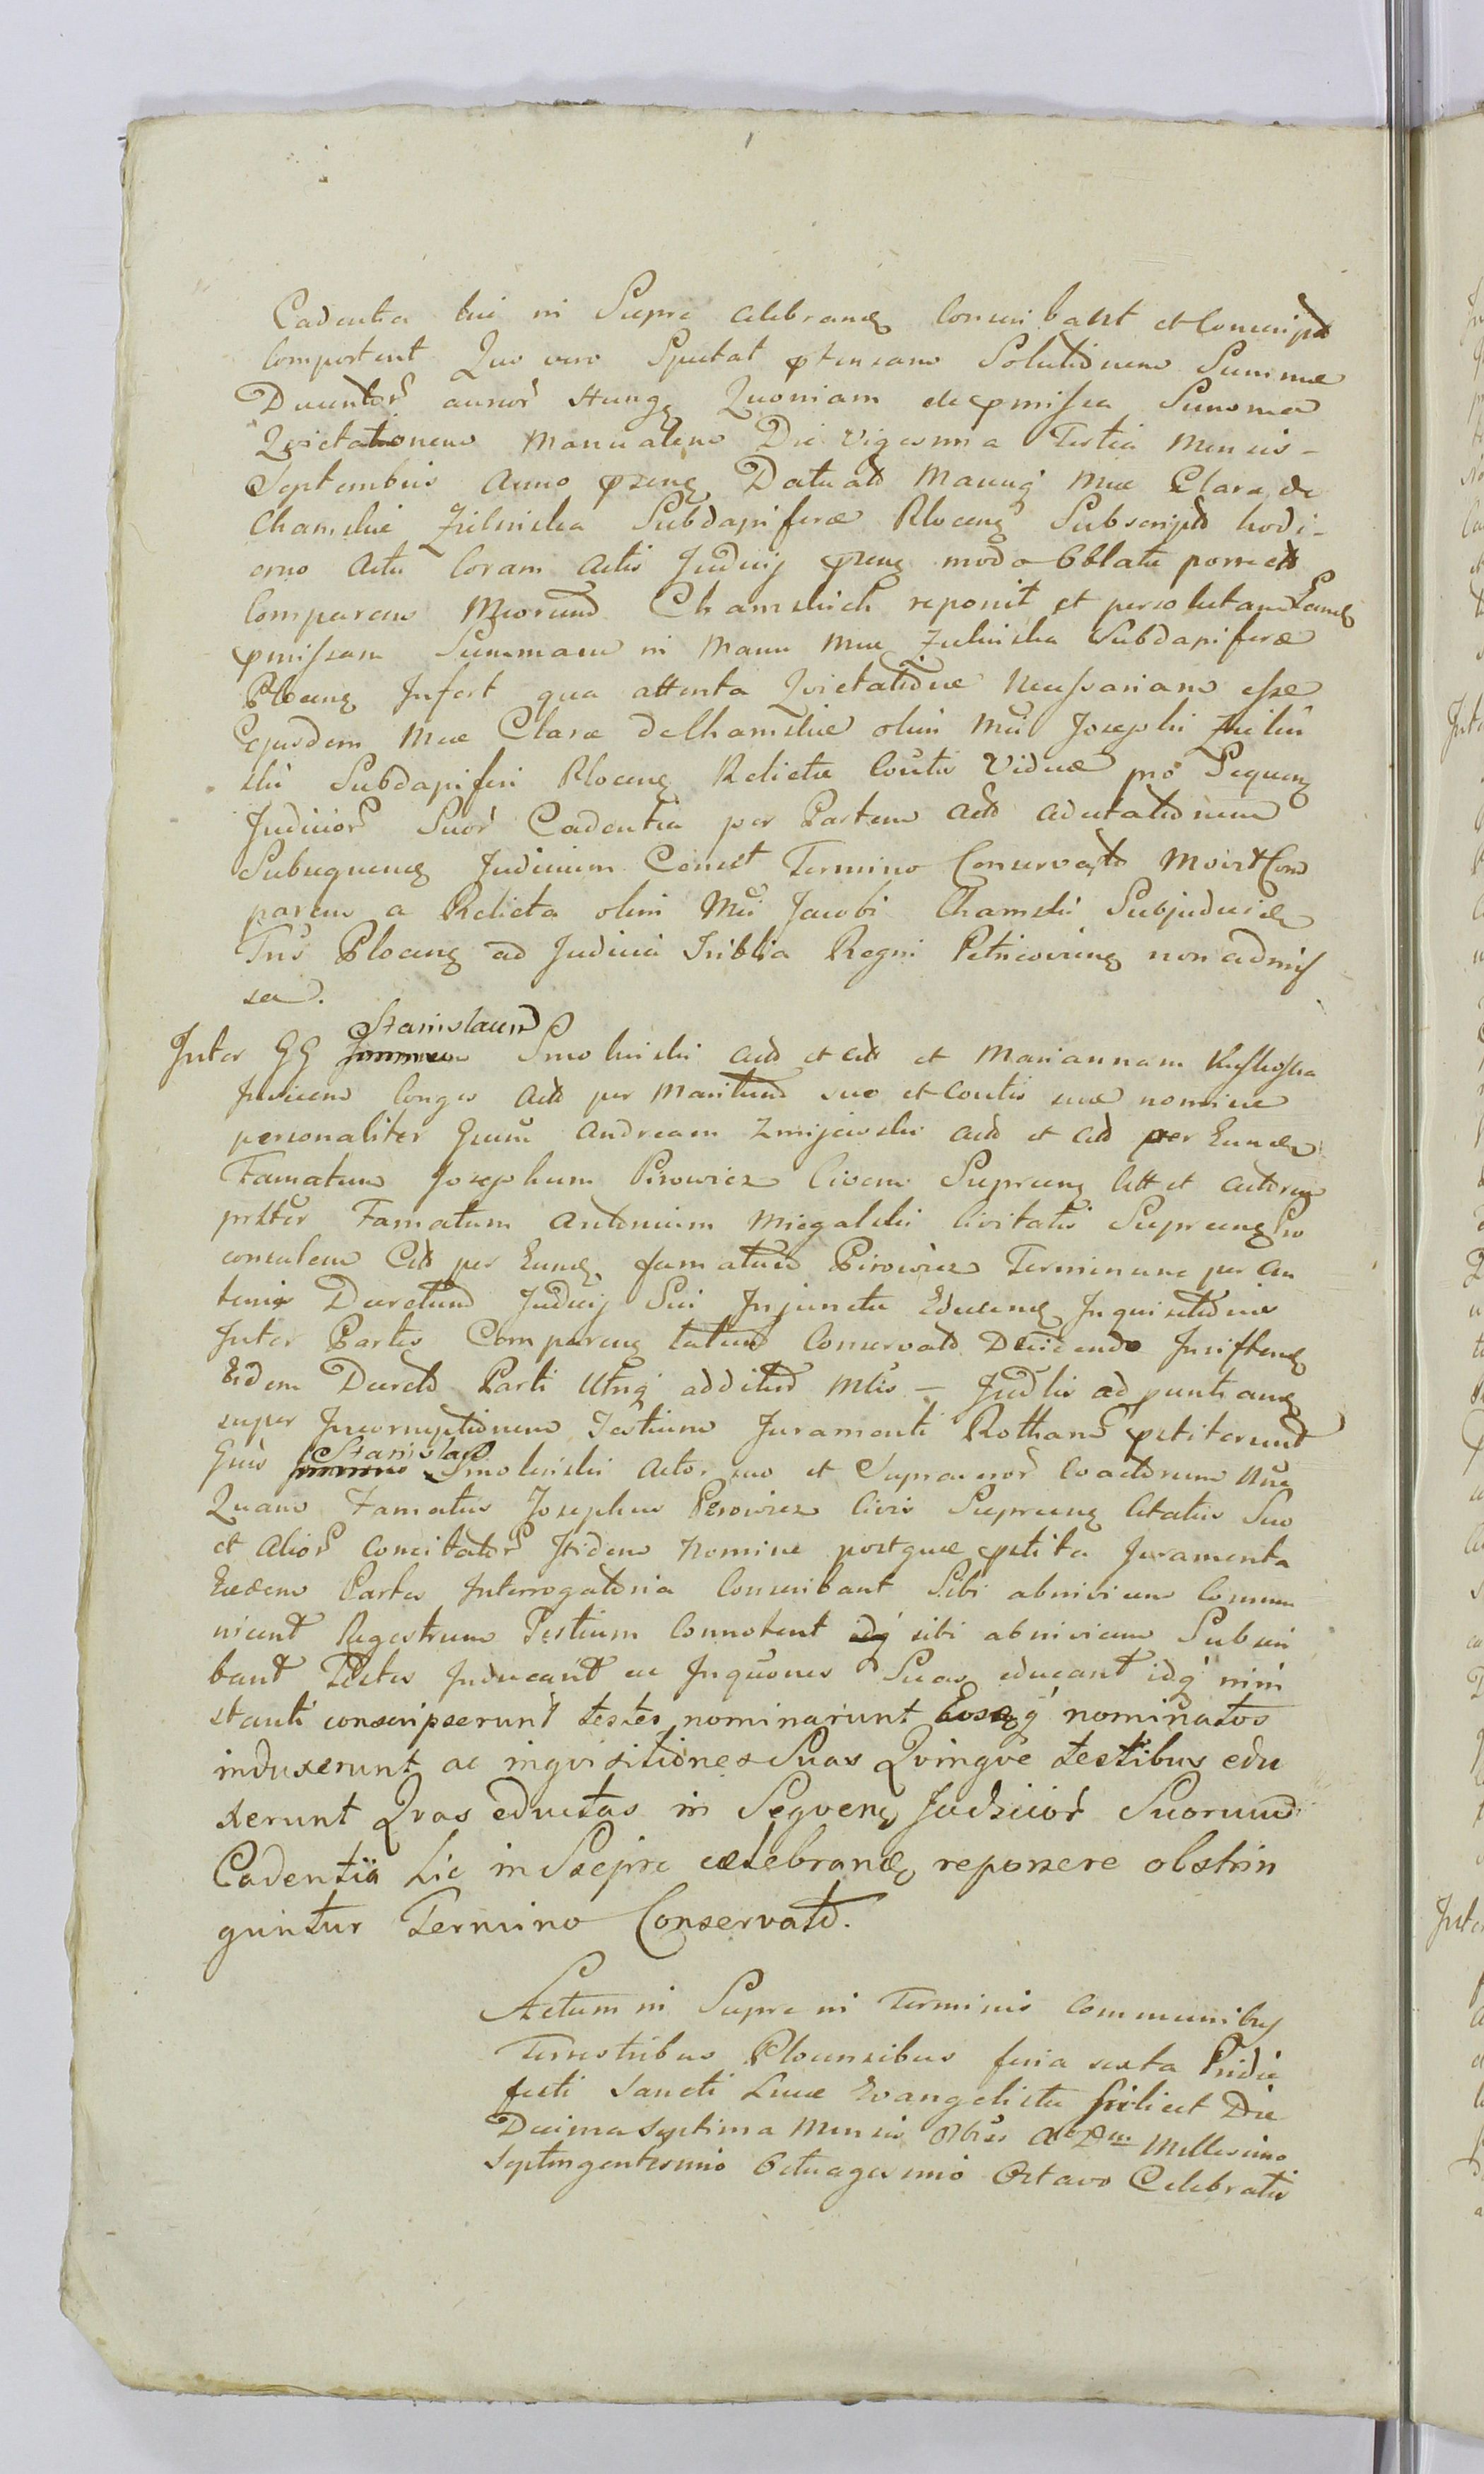 Cadentia hic in Sieprc celebrand conscribant et conscripta
comportent Quo vero Spectat ptensam Solutionem Summæ
Ducentor aureor Hung Quoniam de pmissa Summa
Qvietationem Manualem Die Vigesima Tertia Mensis –
Septembris Anno præsen Datuatd Manuq Mcæ Claræ de
Chamskie Zielinska Subdapiferæ Plocen Subscriptd hodi-
erno Actu Coram Actis Judicij præsen modo Oblatæ porrectd
Comparens Meorund Chamskich reponit et persolutam Eand
pmissam Summam in Manu Mcæ Zielinska Subdapiferæ
Plocen Infert qua attenta Qvietatione Necessariam esse
Ejusdem Mcæ Claræ de Chamskie olim Mci Josephi Zielin
ski Subdapiferi Plocen Relictæ Contis Viduæ pro Sequen
Judicior Suor Cadentia per Partem Actd adcitationem
Subsequens Judicium Censet Termino Conservatd Moirt Com
parens a Relicta olim Mci Jacobi Chamski Subjudicis
Tris Plocen ad Judicia Triblia Regni Petricovien non admis
sa.
Inter GG Stanislaum Smolinski Actd et Citd et Mariannam
Invicem Conges Actd per Maritum suo et Contis suæ nomine
personaliter Gsum Andream Zmijewski Actd et Citd per Eund
Famatum Josephum Pirowicz Civem Sieprcen Citt et Actorem
præter Famatum Antonium Miegalski Civitatis Sieprcen Pro
consulem Citd per Eund famatum Pirowicz Terminum per An
terius Decretum Judicij Sui Injunctæ Educend Inquisitionis
Inter Partes Comparen latum Conservatd Decidendo Insistend
Eidem Decreto Parti Utriq additus Mtis – Judlis ad puncti and
super Incorruptionem Testium Juramenti Rotham pstiterunt
Gsus Stanislaus Smolinski Actor suo et Supra nor Coactorum Nne
Quam Famatus Josephus Perowicz Civis Sieprcen Citatus Suo
et Alior Concitator Itidem Nomine postquæ pstita Juramenta
Eædem Partes Interrogatoria Conscribant Sibi abinvicem Commu
nicent Regestrum Testium Connotent idq sibi abinvicem Subscri
bant Testes Inducant ac Inquones Suas educant idq inin
stanti conscripserunt testes nominarunt Eosq nominatos
induxerunt ac inqvisitiones Suas Qvinqve testibus edu
xerunt Qvas eductas in Seqven Judicior Suorum
Cadentia hic in Sieprc celebrand reponere obstrin
guntur Termino Conservatd.
Actum in Sieprc in Terminis Communibus
Terrestribus Plocensibus feria sexta Pridie
festi Sancti Lucæ Evangelistæ scilicet Die
Decima Septima Mensis 8bris Ao Dni Millesimo
Septingentesimo Octuagesimo Octavo Celebratis